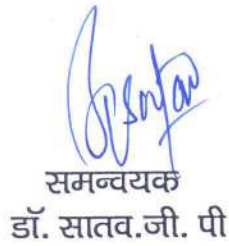 समन्वयक
डॉ. सातव.जी. पी